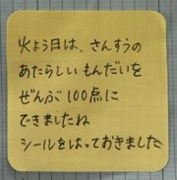 火よう日は、さんすうの
あたらしい もんだいを
ぜんぶ 100点に
できましたね
シールをはっておきました